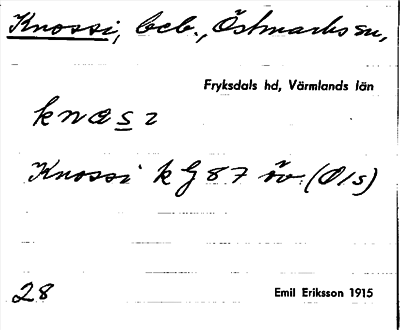 Knossi, beb., Östmarks sn,
Fryksdals hd, Värmlands län
knɑsɪ
Knossi kG 87 öv. (O/s)
28
Emil Eriksson 1915